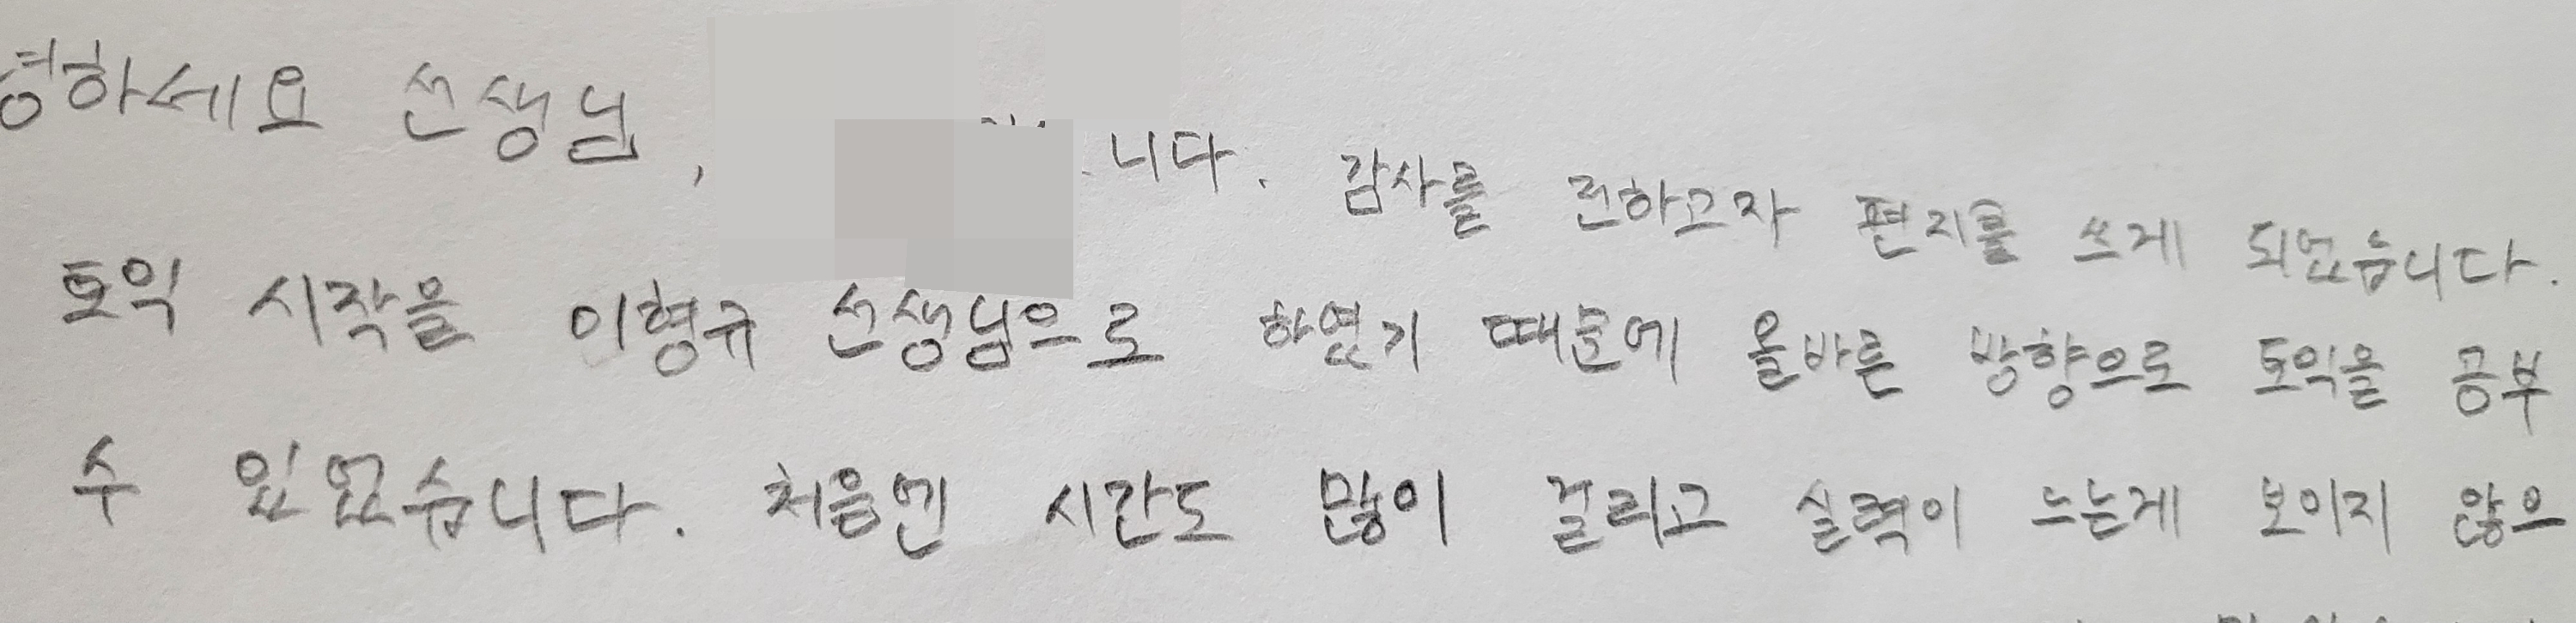 녕하세요 선생님, 니다. 감사를 전하고자 편지를 쓰게 되었습니다.
토익 시작을 이형규 선생님으로 하였기 때문에 올바른 방향으로 토익을 공부
수 있었습니다. 처음엔 시간도 많이 걸리고 실력이 느는게 보이지 않으